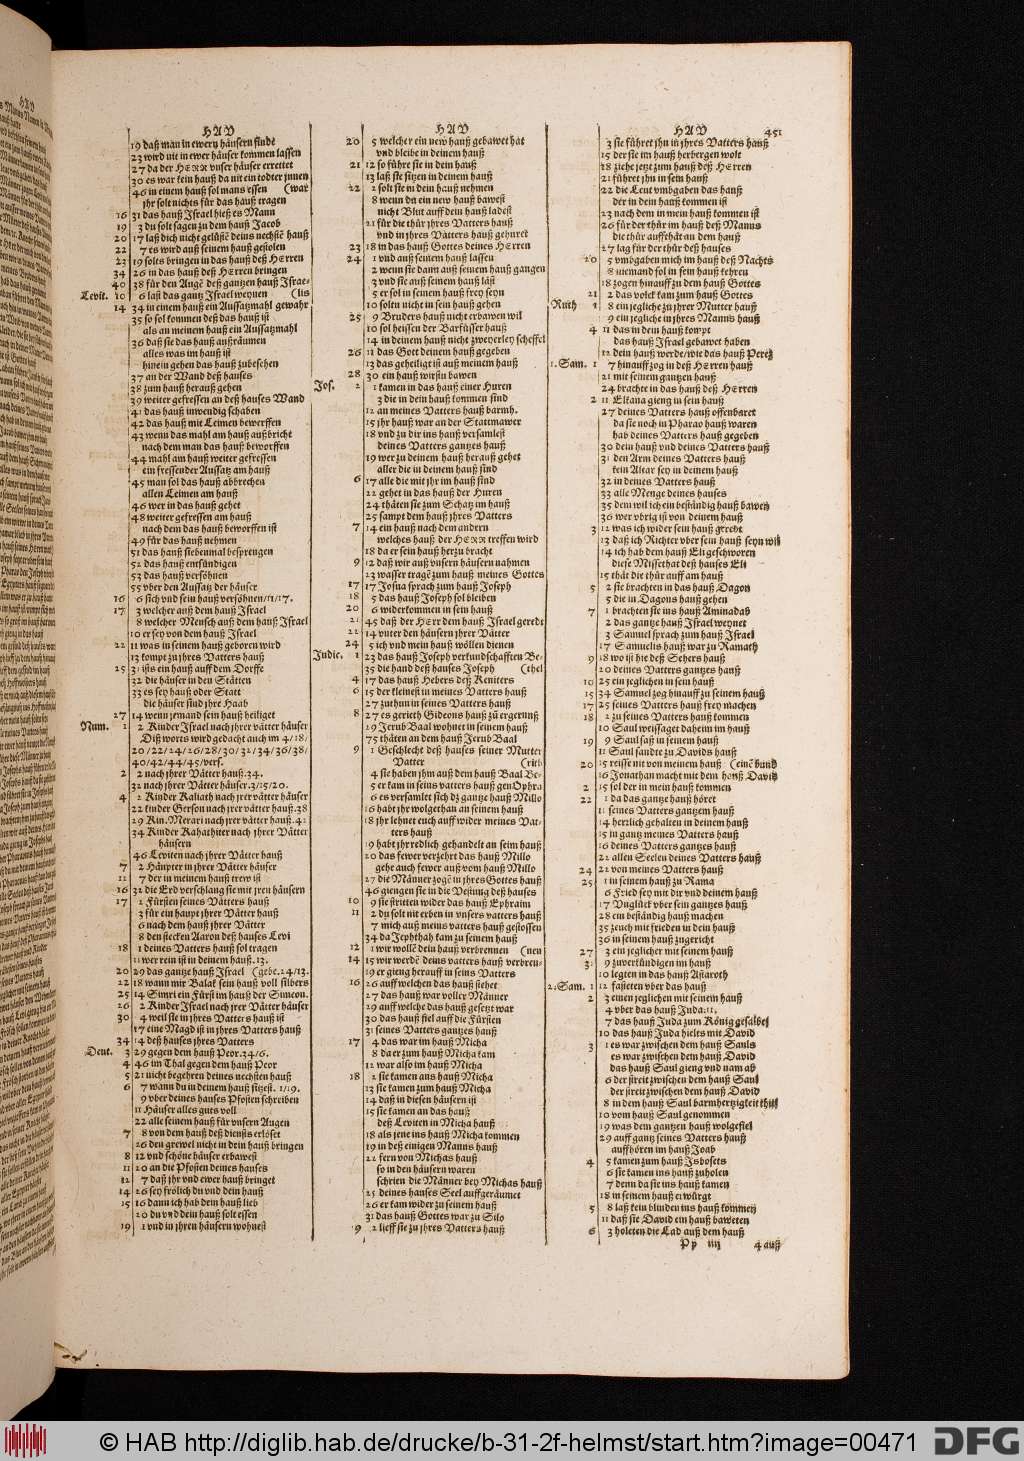 HAV
19 daß man in ewern häusern finde
23 wird nit in ewer häuser kommen lassen
27 da der HERR vnser häuser errettet
30 es war kein hauß da nit ein todter jnnen
46 in einem hauß sol mans essen (war
jhr solt nichts für das hauß tragen
16 31 das hauß Israel hieß es Mann
19 3 du solt sagen zu dem hauß Jacob
20 17 laß dich nicht gelüstē deins nechstē hauß
22 7 es wird auß seinem hauß gestolen
23 19 solts bringen in das hauß deß HErren
34 26 in das hauß deß HErren bringen
40 38 für den Augē deß gantzen hauß Israe-
Levit. 10 6 laßt das gantz Israel weynen (lis
14 34 in einem hauß ein Aussatzmahl gewahr
35 so sol kommen deß das hauß ist
als an meinem hauß ein Aussatzmahl
36 daß sie das hauß außräumen
alles was im hauß ist
hinein gehen das hauß zubesehen
37 an der Wand deß hauses
38 zum hauß herauß gehen
39 weiter gefressen an deß hauses Wand
41 das hauß inwendig schaben
42 das hauß mit Leimen bewerffen
43 wenn das mahl am hauß außbricht
nach dem man das hauß beworffen
44 mahl am hauß weiter gefressen
ein fressender Aussatz am hauß
45 man sol das hauß abbrechen
allen Leimen am hauß
46 wer in das hauß gehet
48 weiter gefressen am hauß
nach dem das hauß beworffen ist
49 für das hauß nehmen
51 das hauß siebenmal besprengen
52 das hauß entsündigen
53 das hauß versöhnen
55 vber den Aussatz der häuser
16 6 sich vnd sein hauß versöhnen/11/17.
17 3 welcher auß dem hauß Israel
8 welcher Mensch auß dem hauß Israel
10 er sey von dem hauß Israel
22 11 was in seinem hauß geboren wird
13 kompt zu jhres Vatters hauß
25 31 ists ein hauß auff dem Dorffe
32 die häuser in den Stätten
33 es sey hauß oder Statt
die häuser sind jhre Haab
27 14 wenn jemand sein hauß heiliget
Num. 1 2 Kinder Israel nach jhrer vätter häuser
Diß worts wird gedacht auch im 4/18/
20/22/24/26/28/30/32/34/36/38/
40/42/44/45/vers.
2 2 nach jhrer Vätter hauß.34.
32 nach jhrer Vätter häuser.3/15/20.
4 2 Kinder Kahath nach jrer vätter häuser
22 kinder Gerson nach jrer vätter hauß.38
29 Kin. Merari nach jrer vätter hauß.42
34 Kinder Kahathiter nach jhrer Vätter
häusern
46 Leviten nach jhrer Vätter hauß
7 2 Häupter in jhrer Vätter häuser
12 7 der in meinem hauß trew ist
16 32 die Erd verschlang sie mit jren häusern
17 2 Fürsten seines Vätters hauß
3 für ein haupt jhrer Vätter hauß
6 nach dem hauß jhrer Vätter
8 den stecken Aaron deß hauses Levi
18 1 deines Vatters hauß sol tragen
11 wer rein ist in deinem hauß.13.
20 29 das gantze hauß Israel (gebe.24/13.
22 18 wann mir Balak sein hauß voll silbers
25 14 Simri ein Fürst im hauß der Simeon.
26 2 Kinder Israel nach jrer Vätter häuser
30 4 weil sie in jhres Vatters hauß ist
17 eine Magd ist in jhres Vatters hauß
34 14 deß hauses jhres Vatters
Deut. 3 29 gegen dem hauß Peor.34/6.
4 46 im Thal gegen dem hauß Peor
5 21 nicht begehren deines nechsten hauß
6 7 wann du in deinem hauß sitzest. 11/19.
9 vber deines hauses Pfosten schreiben
11 Häuser alles guts voll
22 alle seinem hauß für vnsern Augen
7 8 von dem hauß deß diensts erlöset
26 den grewel nicht in dein hauß bringen
8 12 vnd schöne häuser erbawest
11 20 an die Pfosten deines hauses
12 7 daß jhr vnd ewer hauß bringet
14 26 sey frölich du vnd dein hauß
15 16 dann ich hab dein hauß lieb
20 du vnd dein hauß solt essen
19 1 vnd in jhren häusern wohnest
HAV
20 5 welcher ein new hauß gebawet hat
vnd bleibe in deinem hauß
21 12 so führe sie in dein hauß
13 laß sie sitzen in deinem hauß
22 2 solt sie in dein hauß nehmen
8 wenn du ein new hauß bawest
nicht Blut auff dein hauß ladest
21 für die thür jhres Vatters hauß
vnd in jhres Vatters hauß gehuret
23 18 in das hauß Gottes deines HErren
24 1 vnd auß seinem hauß lassen
2 wenn sie dann auß seinem hauß gangen
3 vnd sie auß seinem hauß läst
5 er sol in seinem hauß frey seyn
10 solten nicht in sein hauß gehen
25 9 Bruders hauß nicht erbawen wil
10 sol heissen der Barfüsser hauß
14 in deinem hauß nicht zweyerley scheffel
26 11 das Gott deinem hauß gegeben
13 das geheiligt ist auß meinem hauß
28 30 ein hauß wirstu bawen
Jos. 2 1 kamen in das hauß einer Huren
3 die in dein hauß kommen sind
12 an meines Vatters hauß barmh.
15 jhr hauß war an der Stattmawer
18 vnd zu dir ins hauß versamlest
deines Vatters gantzes hauß
19 wer zu deinem hauß herauß gehet
aller die in deinem hauß sind
6 17 alle die mit jhr im hauß sind
22 gehet in das hauß der Huren
24 thäten sie zum Schatz im hauß
25 sampt dem hauß jhres Vatters
7 14 ein hauß nach dem andern
welches hauß der HERR treffen wird
18 da er sein hauß herzu bracht
9 12 daß wir auß vnsern häusern nahmen
23 wasser tragē zum hauß meines Gottes
17 17 Josua sprach zum hauß Joseph
18 5 das hauß Joseph sol bleiben
20 6 widerkommen in sein hauß
21 45 daß der HErr dem hauß Israel geredt
22 14 vnter den häusern jhrer Vätter
24 5 ich vnd mein hauß wöllen dienen
Judic. 1 23 das hauß Joseph verkundschafften Be-
35 die hand deß hauses Joseph (thel
4 17 das hauß Hebers deß Keniters
6 15 der kleinest in meines Vatters hauß
27 zuthun in seines Vatters hauß
8 27 es gerieth Gideons hauß zū ergernuß
29 Jerub Baal wohnet in seinem hauß
75 thäten an dem hauß Jerub Baal
9 1 Geschlecht deß hauses seiner Mutter
Vatter
4 sie haben jhm auß dem hauß Baal Be-
5 er kam in seins vatters hauß gen Ophra
6 es versamlet sich dz gantze hauß Millo
16 habt jhr wolgethan an seinem hauß
18 jhr lehnet euch auff wider meines Vat-
ters hauß
19 habt jhr redlich gehandelt an seim hauß
20 das fewer verzehrt das hauß Millo
gehe auch fewer auß vom hauß Millo
27 die Männer zogē in jhres Gottes hauß
46 giengen sie in die Vestung deß hauses
10 9 sie stritten wider das hauß Ephraim
11 2 du solt nit erben in vnsers vatters hauß
7 mich auß meins vatters hauß gestossen
34 da Jephthah kam zu seinem hauß
12 1 wir wollē dein hauß verbrennen (nen
14 15 wir werdē deins vatters hauß verbren-
19 er gieng herauff in seins Vatters
16 26 auff welchen das hauß stehet
27 das hauß war voller Männer
29 auff welche das hauß gesetzt war
30 das hauß fiel auff die Fürsten
31 seines Vatters gantzes hauß
17 4 das war im hauß Micha
8 da er zum hauß Micha kam
12 war also im hauß Micha
18 2 sie kamen ans hauß Micha
13 sie kamen zum hauß Micha
14 daß in diesen häusern ist
15 sie kamen an das hauß
deß Leviten in Micha hauß
18 als jene ins hauß Micha kommen
19 in deß einigen Manns hauß
22 fern von Michas hauß
so in den häusern waren
schrien die Männer bey Michas hauß
25 deines hauses Seel auffgeräumet
26 er kam wider zu seinem hauß
31 das hauß Gottes war zu Silo
9 2 lieff sie zu jhres Vatters hauß
HAV 451
3 sie führet jhn in jhres Vatters hauß
15 der sie im hauß herbergen wolt
18 ziehe jetzt zum hauß deß HErren
21 führet jhn in sein hauß
22 die Leut vmbgaben das hauß
der in dein hauß kommen ist
23 nach dem in mein hauß kommen ist
26 für der thür im hauß deß Manns
die thür auffthät an dem hauß
27 lag für der thür deß hauses
20 5 vmbgaben mich im hauß deß Nachts
8 niemand sol in sein hauß kehren
18 zogen hinauff zu dem hauß Gottes
21 2 das volck kam zum hauß Gottes
Ruth 1 8 ein jegliche zu jhrer Mutter hauß
9 ein jegliche in jhres Manns hauß
4 11 das in dein hauß kompt
das hauß Israel gebawet haben
12 dein hauß werde/wie das hauß Perez
1.Sam. 1 7 hinauff zog in deß HErren hauß
21 mit seinem gantzen hauß
24 bracht in das hauß deß HErren
2 11 Elkana gieng in sein hauß
27 deines Vatters hauß offenbaret
da sie noch in Pharao hauß waren
hab deines Vatters hauß gegeben
30 dein hauß vnd deines Vatters hauß
31 den Arm deines Vatters hauß
kein Altar sey in deinem hauß
32 in deines Vatters hauß
33 alle Menge deines hauses
35 dem wil ich ein beständig hauß bawen
36 wer vbrig ist von deinem hauß
3 12 was ich wider sein hauß geredt
13 daß ich Richter vber sein hauß seyn wil
14 ich hab dem hauß Eli geschworen
diese Missethat deß hauses Eli
15 thät die thür auff am hauß
5 2 sie brachten in das hauß Dagon
5 die in Dagons hauß gehen
7 1 brachten sie ins hauß Aminadab
2 das gantze hauß Israel weynet
3 Samuel sprach zum hauß Israel
17 Samuelis hauß war zu Ramath
9 18 wo ist hie deß Sehers hauß
20 deines Vatters gantzes hauß
10 25 ein jeglichen in sein hauß
15 34 Samuel zog hinauff zu seinem hauß
17 25 seines Vatters hauß frey machen
18 2 zu seines Vatters hauß kommen
10 Saul weissaget daheim im hauß
19 9 Saul saß in seinem hauß
11 Saul sandte zu Davids hauß
20 15 reisse nit von meinem hauß (einē bund
16 Jonathan macht mit dem hauß David
2 15 sol der in mein hauß kommen
22 1 da das gantze hauß höret
11 seines Vatters gantzem hauß
14 herzlich gehalten in deinem hauß
15 in gantz meines Vatters hauß
16 deines Vatters gantzes hauß
22 allen Seelen deines Vatters hauß
24 22 von meines Vatters hauß
25 1 in seinem hauß zu Rama
6 Fried sey mit dir vnd deinem hauß
17 Vnglück vber sein gantzes hauß
28 ein beständig hauß machen
35 zeuch mit frieden in dein hauß
36 in seinem hauß zugericht
27 3 ein jeglicher mit seinem hauß
31 9 zuverkündigen im hauß
10 legten in das hauß Astaroth
2.Sam. 1 12 fasteten vber das hauß
2 3 einen jeglichen mit seinem hauß
4 vber das hauß Juda.11.
7 das hauß Juda zum König gesalbet
10 das hauß Juda hielts mit David
3 1 es war zwischen dem hauß Sauls
es war zwischen dem David
das hauß Saul gieng vnd nam ab
6 der streit zwischen dem hauß Saul
der streit zwischen dem hauß David
8 in dem hauß Saul barmhertzigkeit thut
10 vom hauß Saul genommen
19 was dem gantzen hauß wolgefiel
29 auff gantz seines Vatters hauß
auffhören im hauß Joab
4 5 kamen zum hauß Isbosets
6 sie kamen ins hauß zuholen
7 denn da sie ins hauß kamen
18 in seinem hauß erwürgt
5 8 laß kein blinden ins hauß kommen
11 daß sie David ein hauß baweten
6 3 holeten die Lad auß dem hauß
Pp iiij 4 auß
© HAB http://diglib.hab.de/drucke/b-31-2f-helmst/start.htm?image=00471
DFG